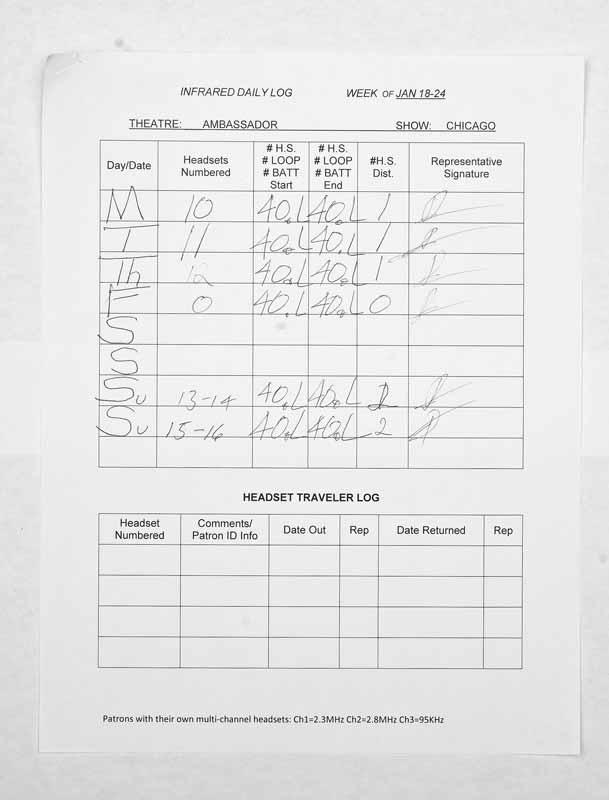 INFRARED DAILY LOG WEEK OF JAN 18-24
THEATRE: AMBASSADOR SHOW: CHICAGO
Day/Date Headsets Numbered # H.S. # LOOP # BATT Start # H.S. # LOOP # BATT End #H.S. Dist. Representative Signature
M 10 40.L 40.L 1
T 11 40.L 40.L 1
Th 12 40.L 40.L 1
F 0 40.L 40.L 0
S
S
Su 13-14 40.L 40.L
Su 15-16 40.L 40.L 2
HEADSET TRAVELER LOG
Headset Numbered Comments/ Patron ID Info Date Out Rep Date Returned Rep
Patrons with their own multi-channel headsets: Ch1=2.3MHz Ch2=2.8MHz Ch3=95KHz